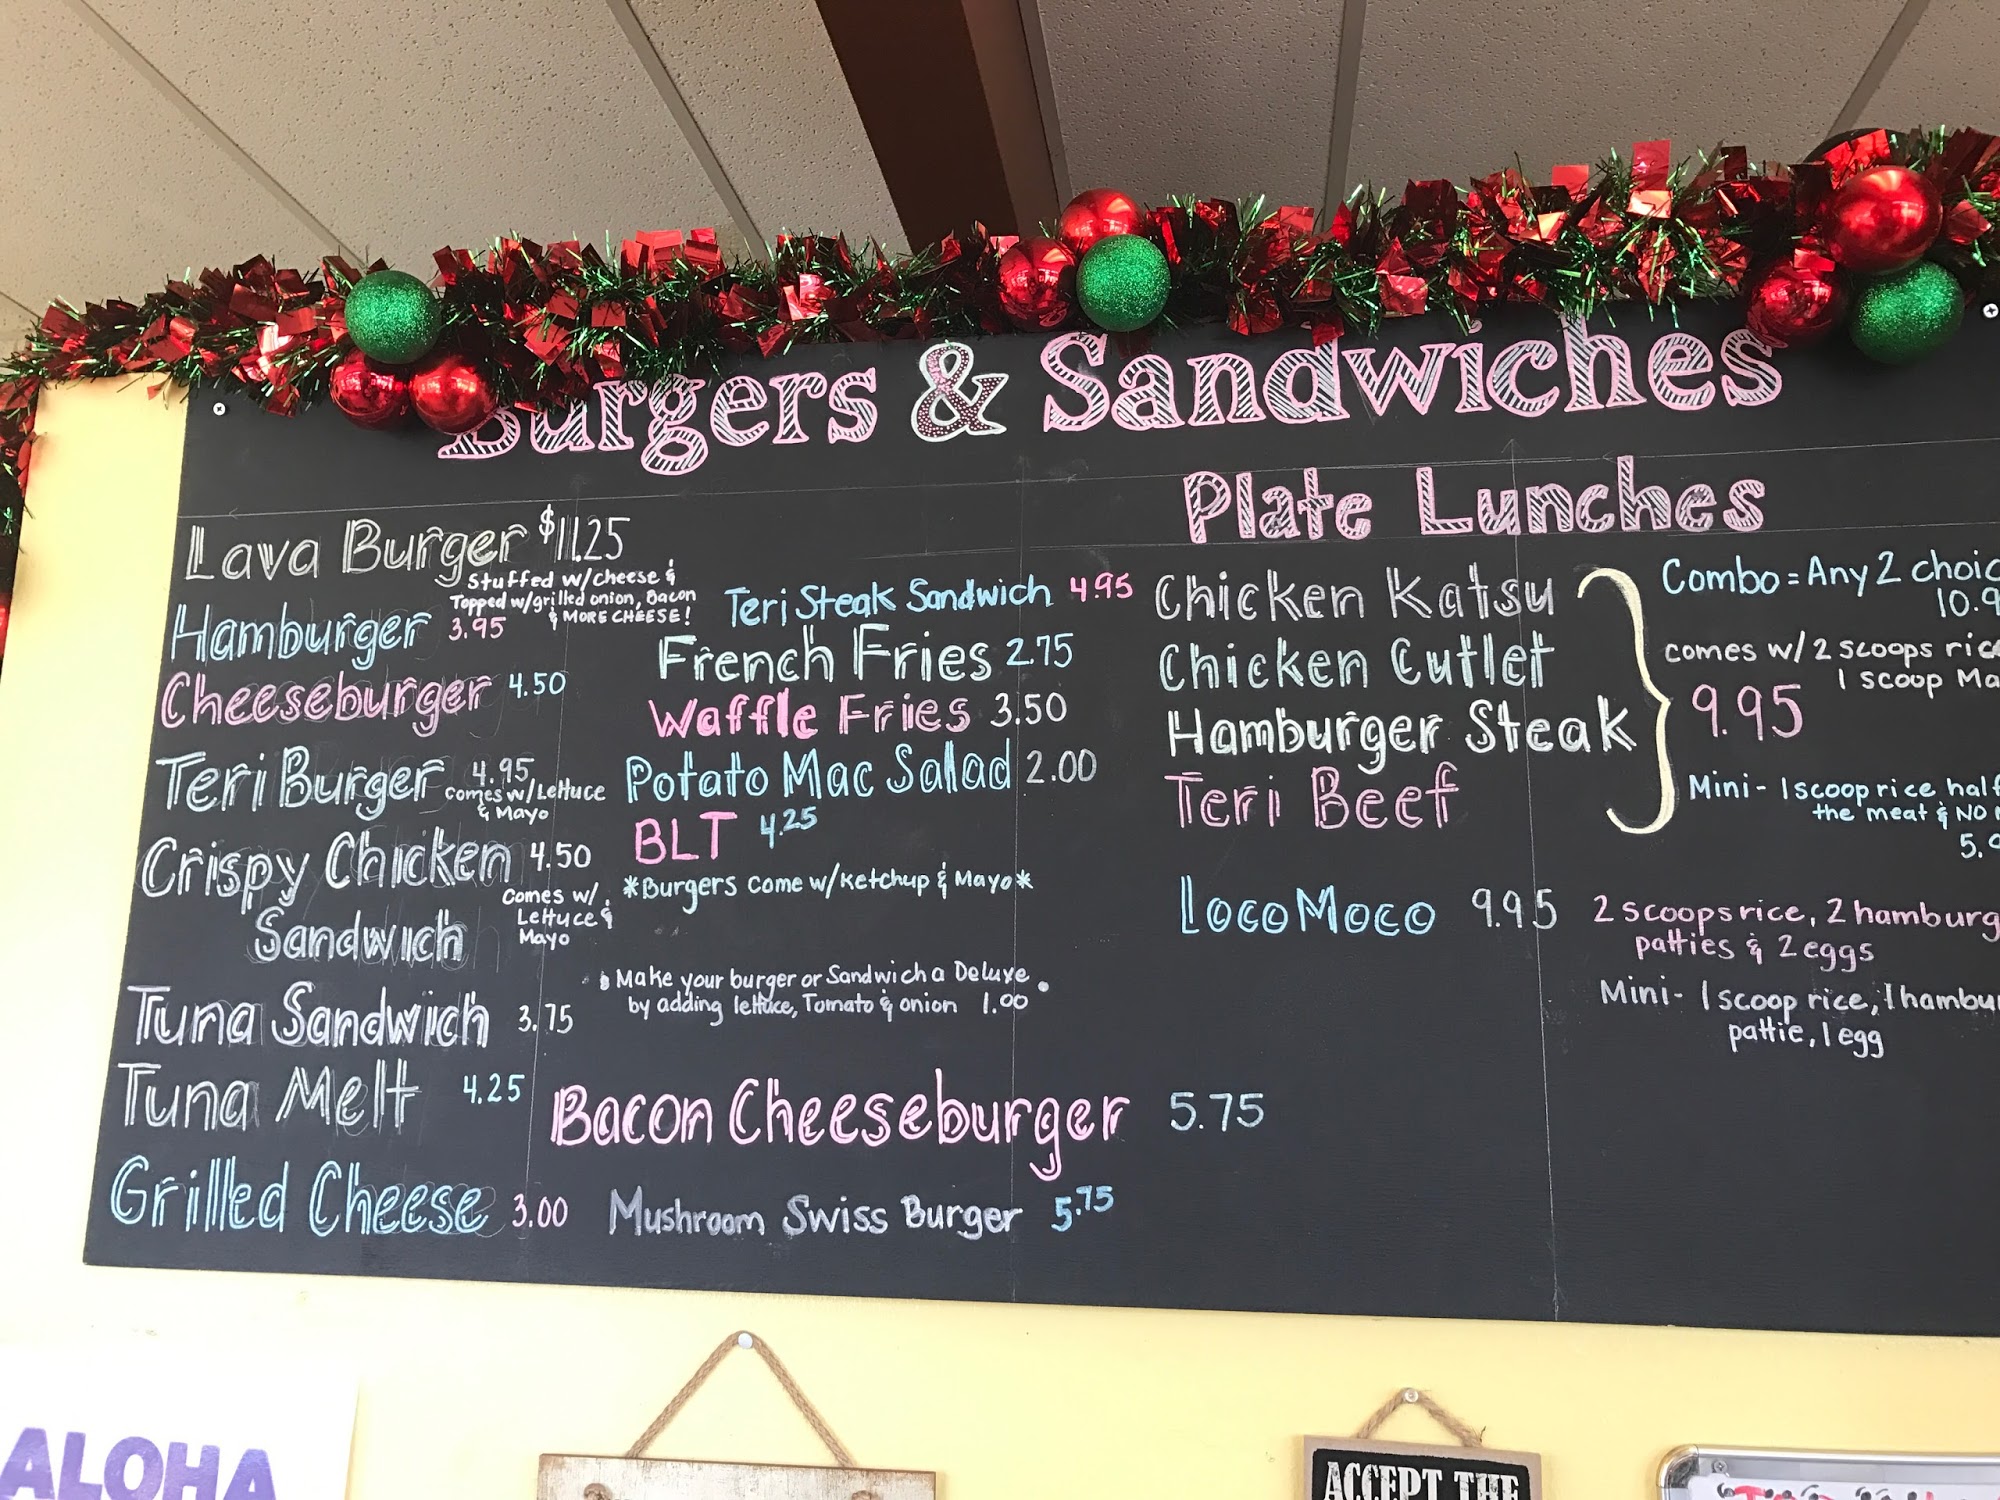 Burgers & Sandwiches
Lava Burger $11.25
Stuffed w/cheese &
Topped w/grilled onion, Bacon
& MORE CHEESE!
Hamburger 3.95
Cheeseburger 4.50
Teri Burger 4.95
comes w/Lettuce
& Mayo
Crispy Chicken 4.50
Sandwich
Comes w/
Lettuce &
Mayo
Tuna Sandwich 3.75
Tuna Melt 4.25
Grilled Cheese 3.00
Teri Steak Sandwich 4.95
French Fries 2.75
Waffle Fries 3.50
Potato Mac Salad 2.00
BLT 4.25
*Burgers come w/Ketchup & Mayo*
Make your burger or Sandwich a Deluxe
by adding lettuce, Tomato & onion 1.00
Bacon Cheeseburger 5.75
Mushroom Swiss Burger 5.75
Plate Lunches
Chicken Katsu
Chicken Cutlet
Hamburger Steak
Teri Beef
Combo = Any 2 choic
10.9
comes w/ 2 scoops ric
1 scoop Ma
9.95
Mini - 1 scoop rice half
the meat & NO
5.9
Loco Moco 9.95
2 scoops rice, 2 hamburg
patties & 2 eggs
Mini - 1 scoop rice, 1 hambu
pattie, 1 egg
ALOHA
ACCEPT THE